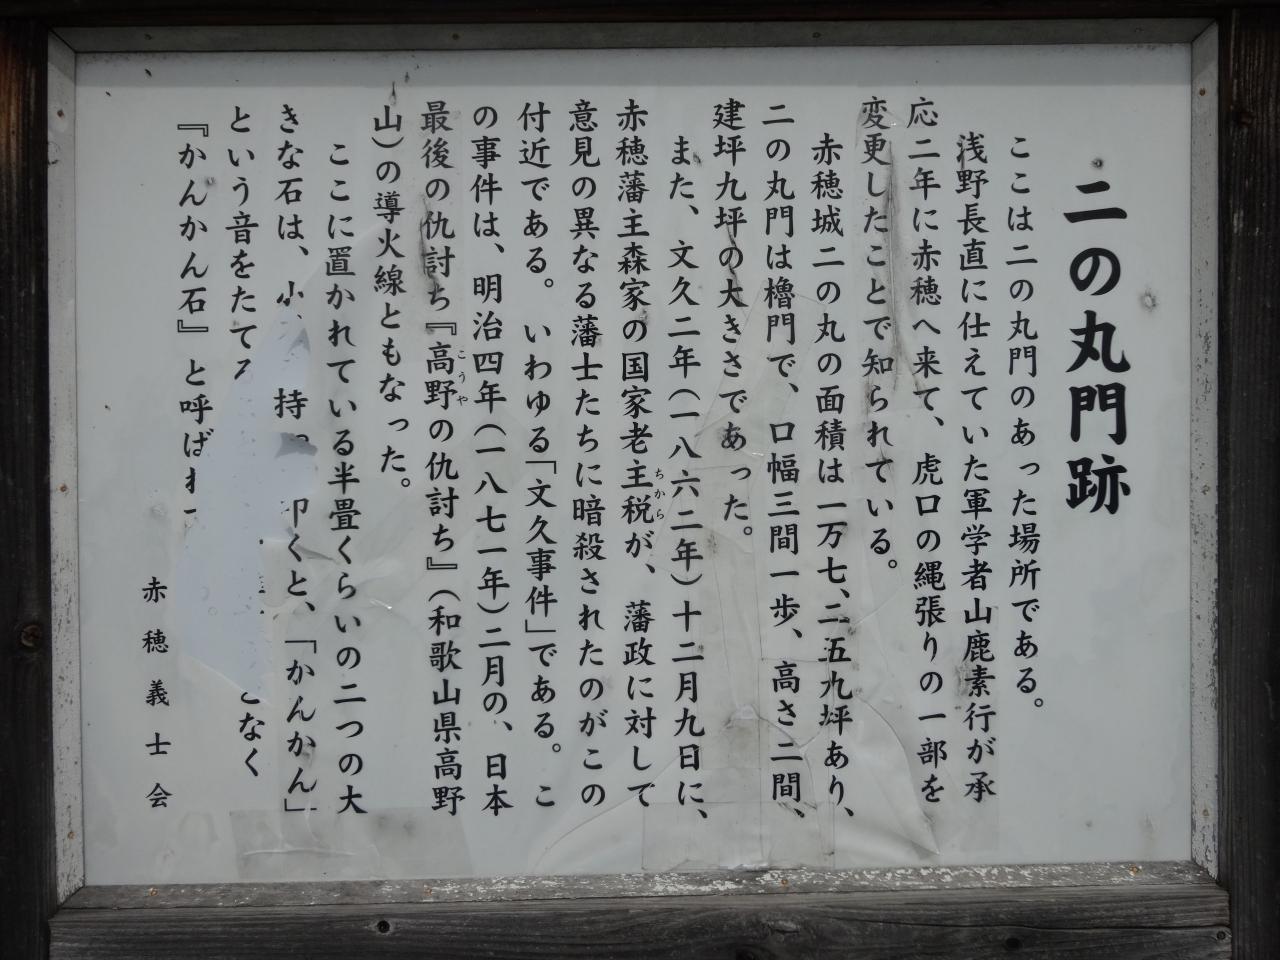 二の丸門跡
ここは二の丸門のあった場所である。
浅野長直に仕えていた軍学者山鹿素行が承
応二年に赤穂へ来て、虎口の縄張りの一部を
変更したことで知られている。
赤穂城二の丸の面積は一万七、二五九坪あり、
二の丸門は櫓門で、口幅三間一歩、高さ二間、
建坪九坪の大きさであった。
また、文久二年(一八六二年)十二月九日に、
赤穂藩主森家の国家老主税が、藩政に対して
ちから
意見の異なる藩士たちに暗殺されたのがこの
付近である。いわゆる「文久事件」である。こ
の事件は、明治四年(一八七一年)二月の、日本
最後の仇討ち『高野の仇討ち』(和歌山県高野
こうや
山)の導火線ともなった。
ここに置かれている半畳くらいの二つの大
きな石は、小 持 叩くと、「かんかん」
という音をたてる となく
『かんかん石』と呼ばれ
赤穂義士会